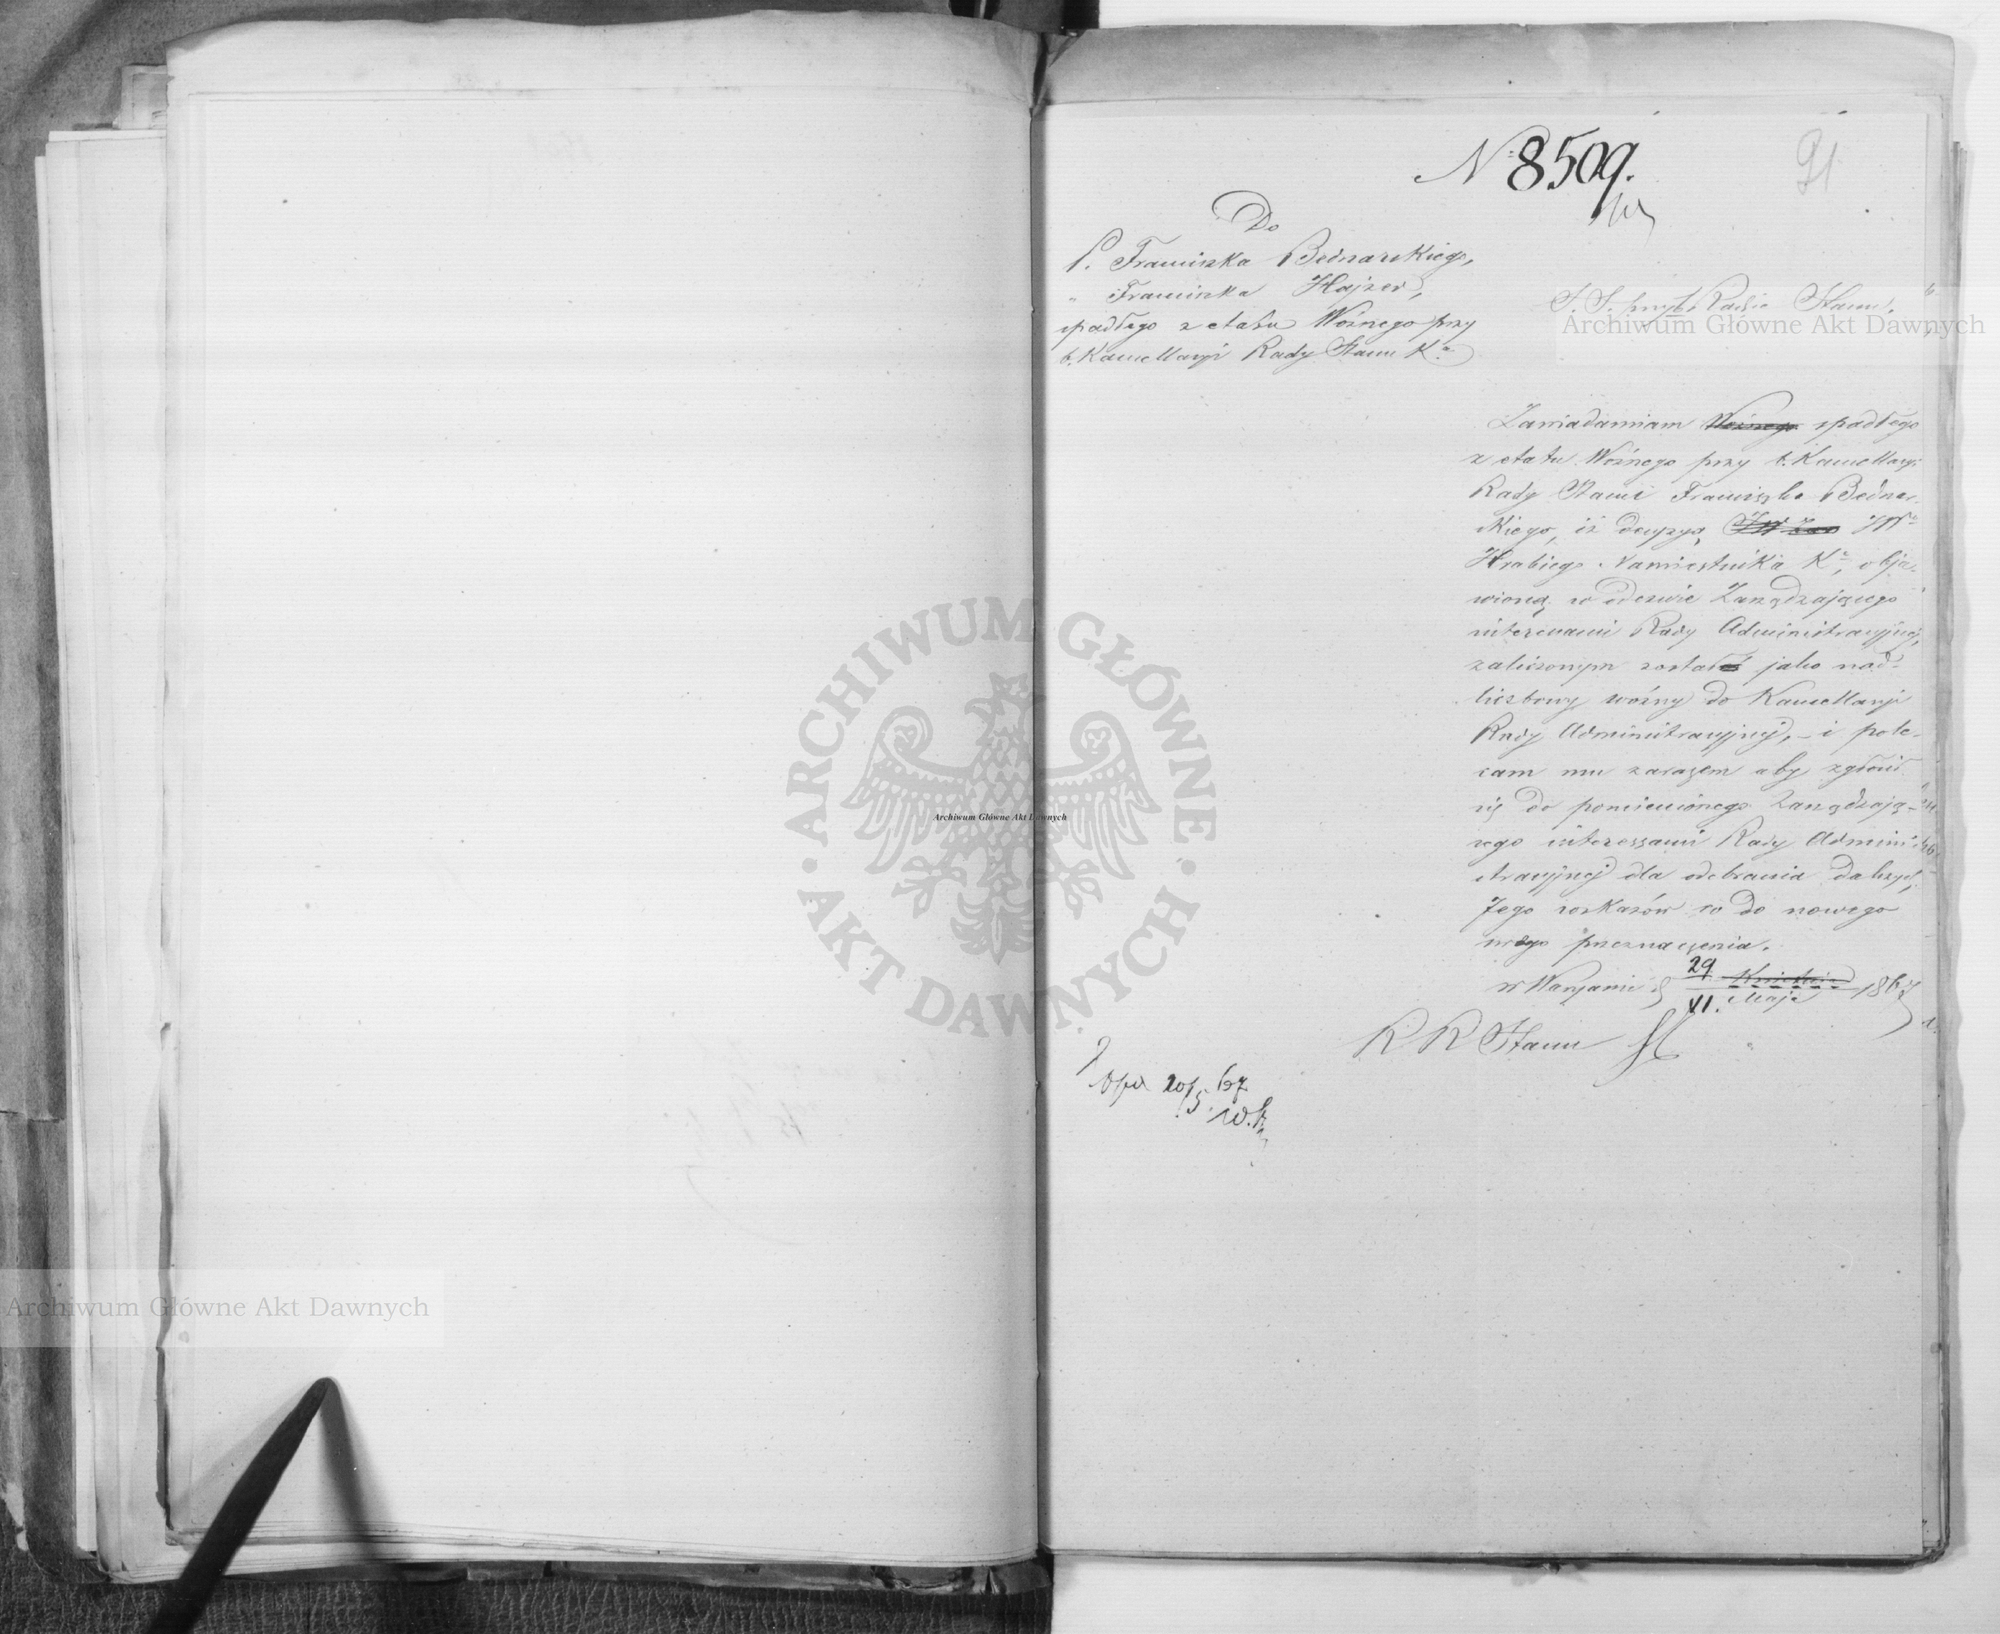 91
№ 8509.
Do
P. Franciszka Bednarskiego,
" Franciszka Hajzer,
spadłego z etatu Woźnego przy
b. Kancellaryi Rady Stanu K.a
S. S. przy b. Radzie Stanu.
Zawiadamiam Woźnego spadłego
z etatu Woźnego przy b. Kancellaryi
Rady Stanu Franciszka Bednar-
skiego, iż decyzyą JW
Hrabiego Namiestnika K.a, obja-
wioną w odezwie Zarządzającego
interesami Rady Administracyjnej,
zaliczonym został jako nad-
liczbowy woźny do Kancellaryi
Rady Administracyjnej, - i pole-
cam mu zarazem aby zgłosił
się do pomienionego Zarządzają-
cego interessami Rady Admini-
stracyjnej dla odebrania dalszych
Jego rozkazów co do nowego
swego przeznaczenia.
w Warszawie d 29 Kwietnia 1867
VI. Maja
R R Stanu
20/5 67
Archiwum Główne Akt Dawnych
Archiwum Główne Akt Dawnych
Archiwum Główne Akt Dawnych
ARCHIWUM GŁÓWNE · AKT DAWNYCH ·